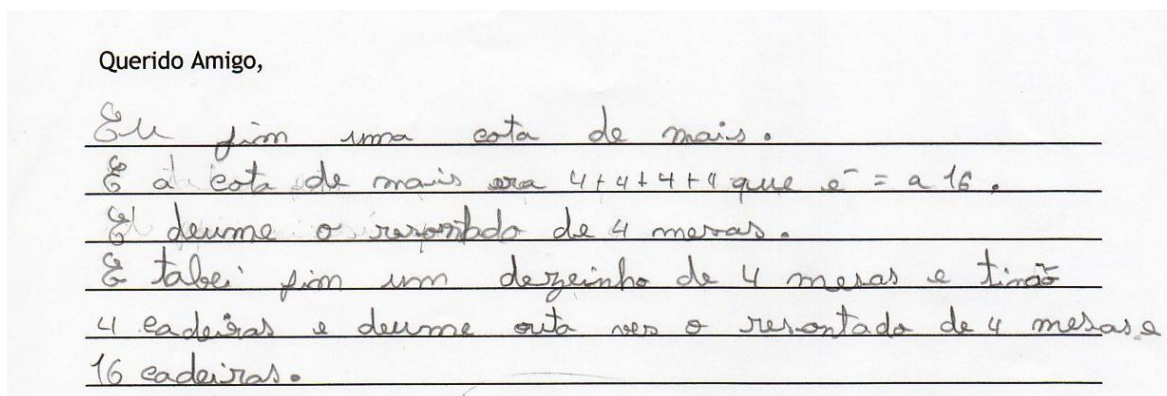 Querido Amigo,
Eu fim uma cota de mais.
E a cota de mais era 4+4+4+4 que é = a 16.
E deume o resontado de 4 mesas.
E tabei fim um dezeinho de 4 mesas e tinão
4 cadeiras e deume outa ves o resontado de 4 mesas e
16 cadeiras.